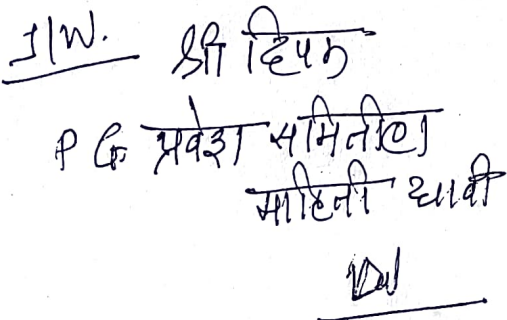 J/W. श्री दिपक
P G प्रवेश समितीला
माहिती द्यावी